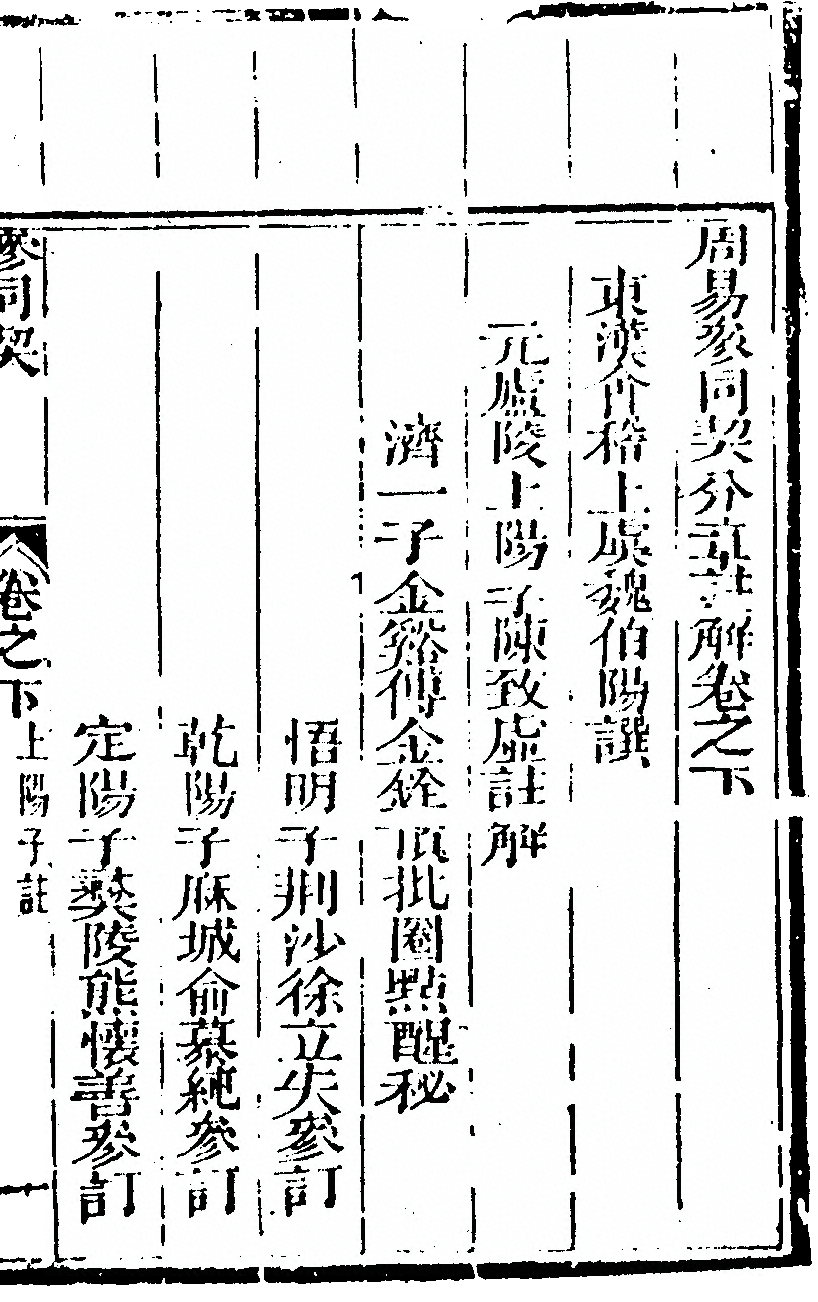 周易參同契分章註解卷之下
東漢會稽上虞魏伯陽譔
元廬陵上陽子陳致虛註解
濟一子金谿傅金銓頂批圈點醒秘
悟明子荆沙徐立失參訂
乾陽子麻城俞慕純參訂
定陽子夔陵熊懷善參訂
參同契 卷之下 上陽子註 一